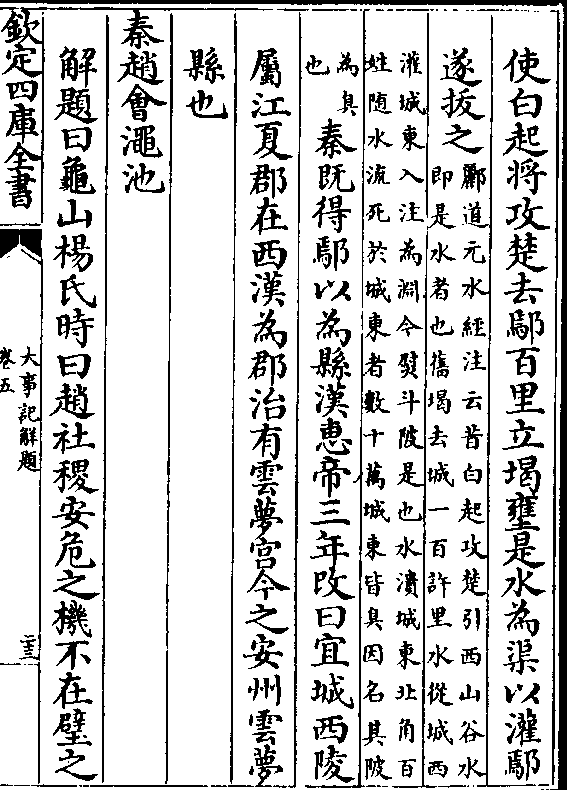 使白起將攻楚去鄢百里立堨壅是水為渠以灌鄢
遂拔之
酈道元水經注云昔白起攻楚引西山谷水
即是水者也舊堨去城一百許里水從城西
灌城東入注為淵今熨斗陂是也水潰城東北角百
姓隨水流死於城東者數十萬城東皆臭因名其陂
為臭
也
秦既得鄢以為縣漢惠帝三年改曰宜城西陵
屬江夏郡在西漢為郡治有雲夢宫今之安州雲夢
縣也
秦趙會澠池
解題曰龜山楊氏時曰趙社稷安危之機不在璧之
欽定四庫全書
大事記解題
卷五
二十三